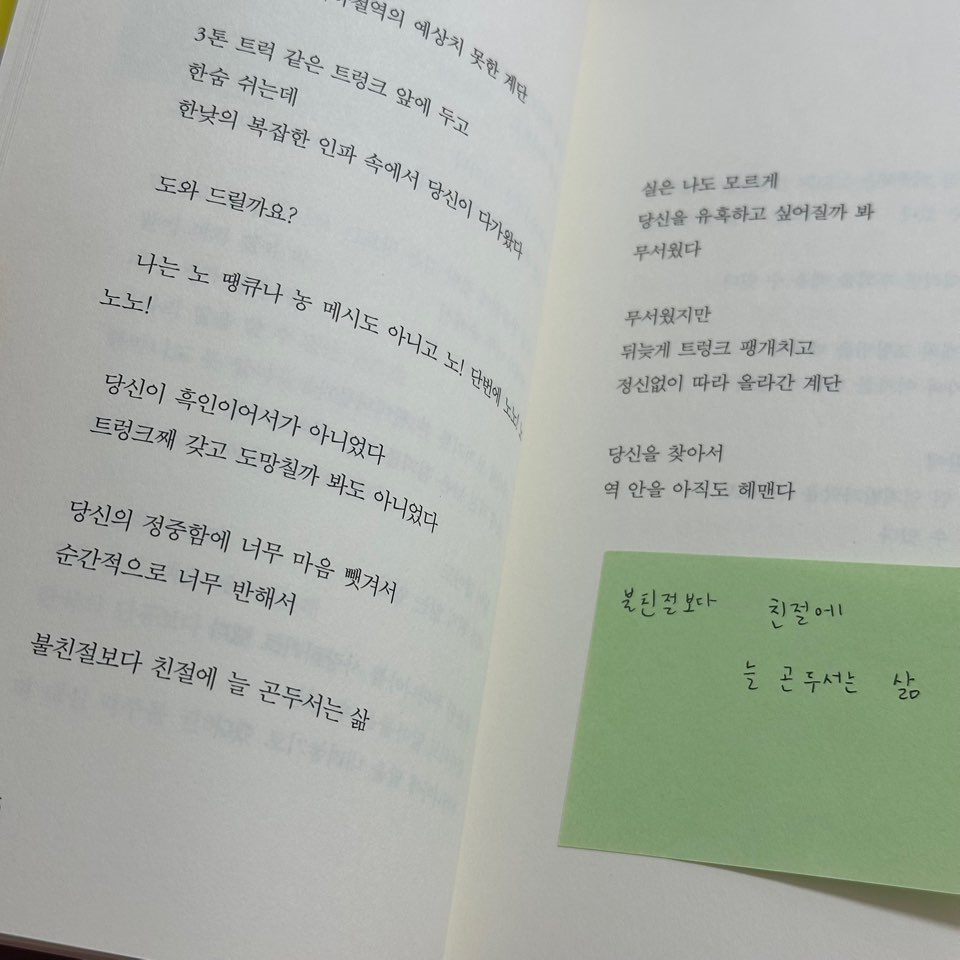 예상치 못한 계단
3톤 트럭 같은 트렁크 앞에 두고
한숨 쉬는데
한낮의 복잡한 인파 속에서 당신이 다가왔다
도와 드릴까요?
나는 노 땡큐나 농 메시도 아니고 노! 단번에 노노!
노노!
당신이 흑인이어서가 아니었다
트렁크째 갖고 도망칠까 봐도 아니었다
당신의 정중함에 너무 마음 뺏겨서
순간적으로 너무 반해서
불친절보다 친절에 늘 곤두서는 삶
실은 나도 모르게
당신을 유혹하고 싶어질까 봐
무서웠다
무서웠지만
뒤늦게 트렁크 팽개치고
정신없이 따라 올라간 계단
당신을 찾아서
역 안을 아직도 헤맨다
불친절보다 친절에
늘 곤두서는 삶